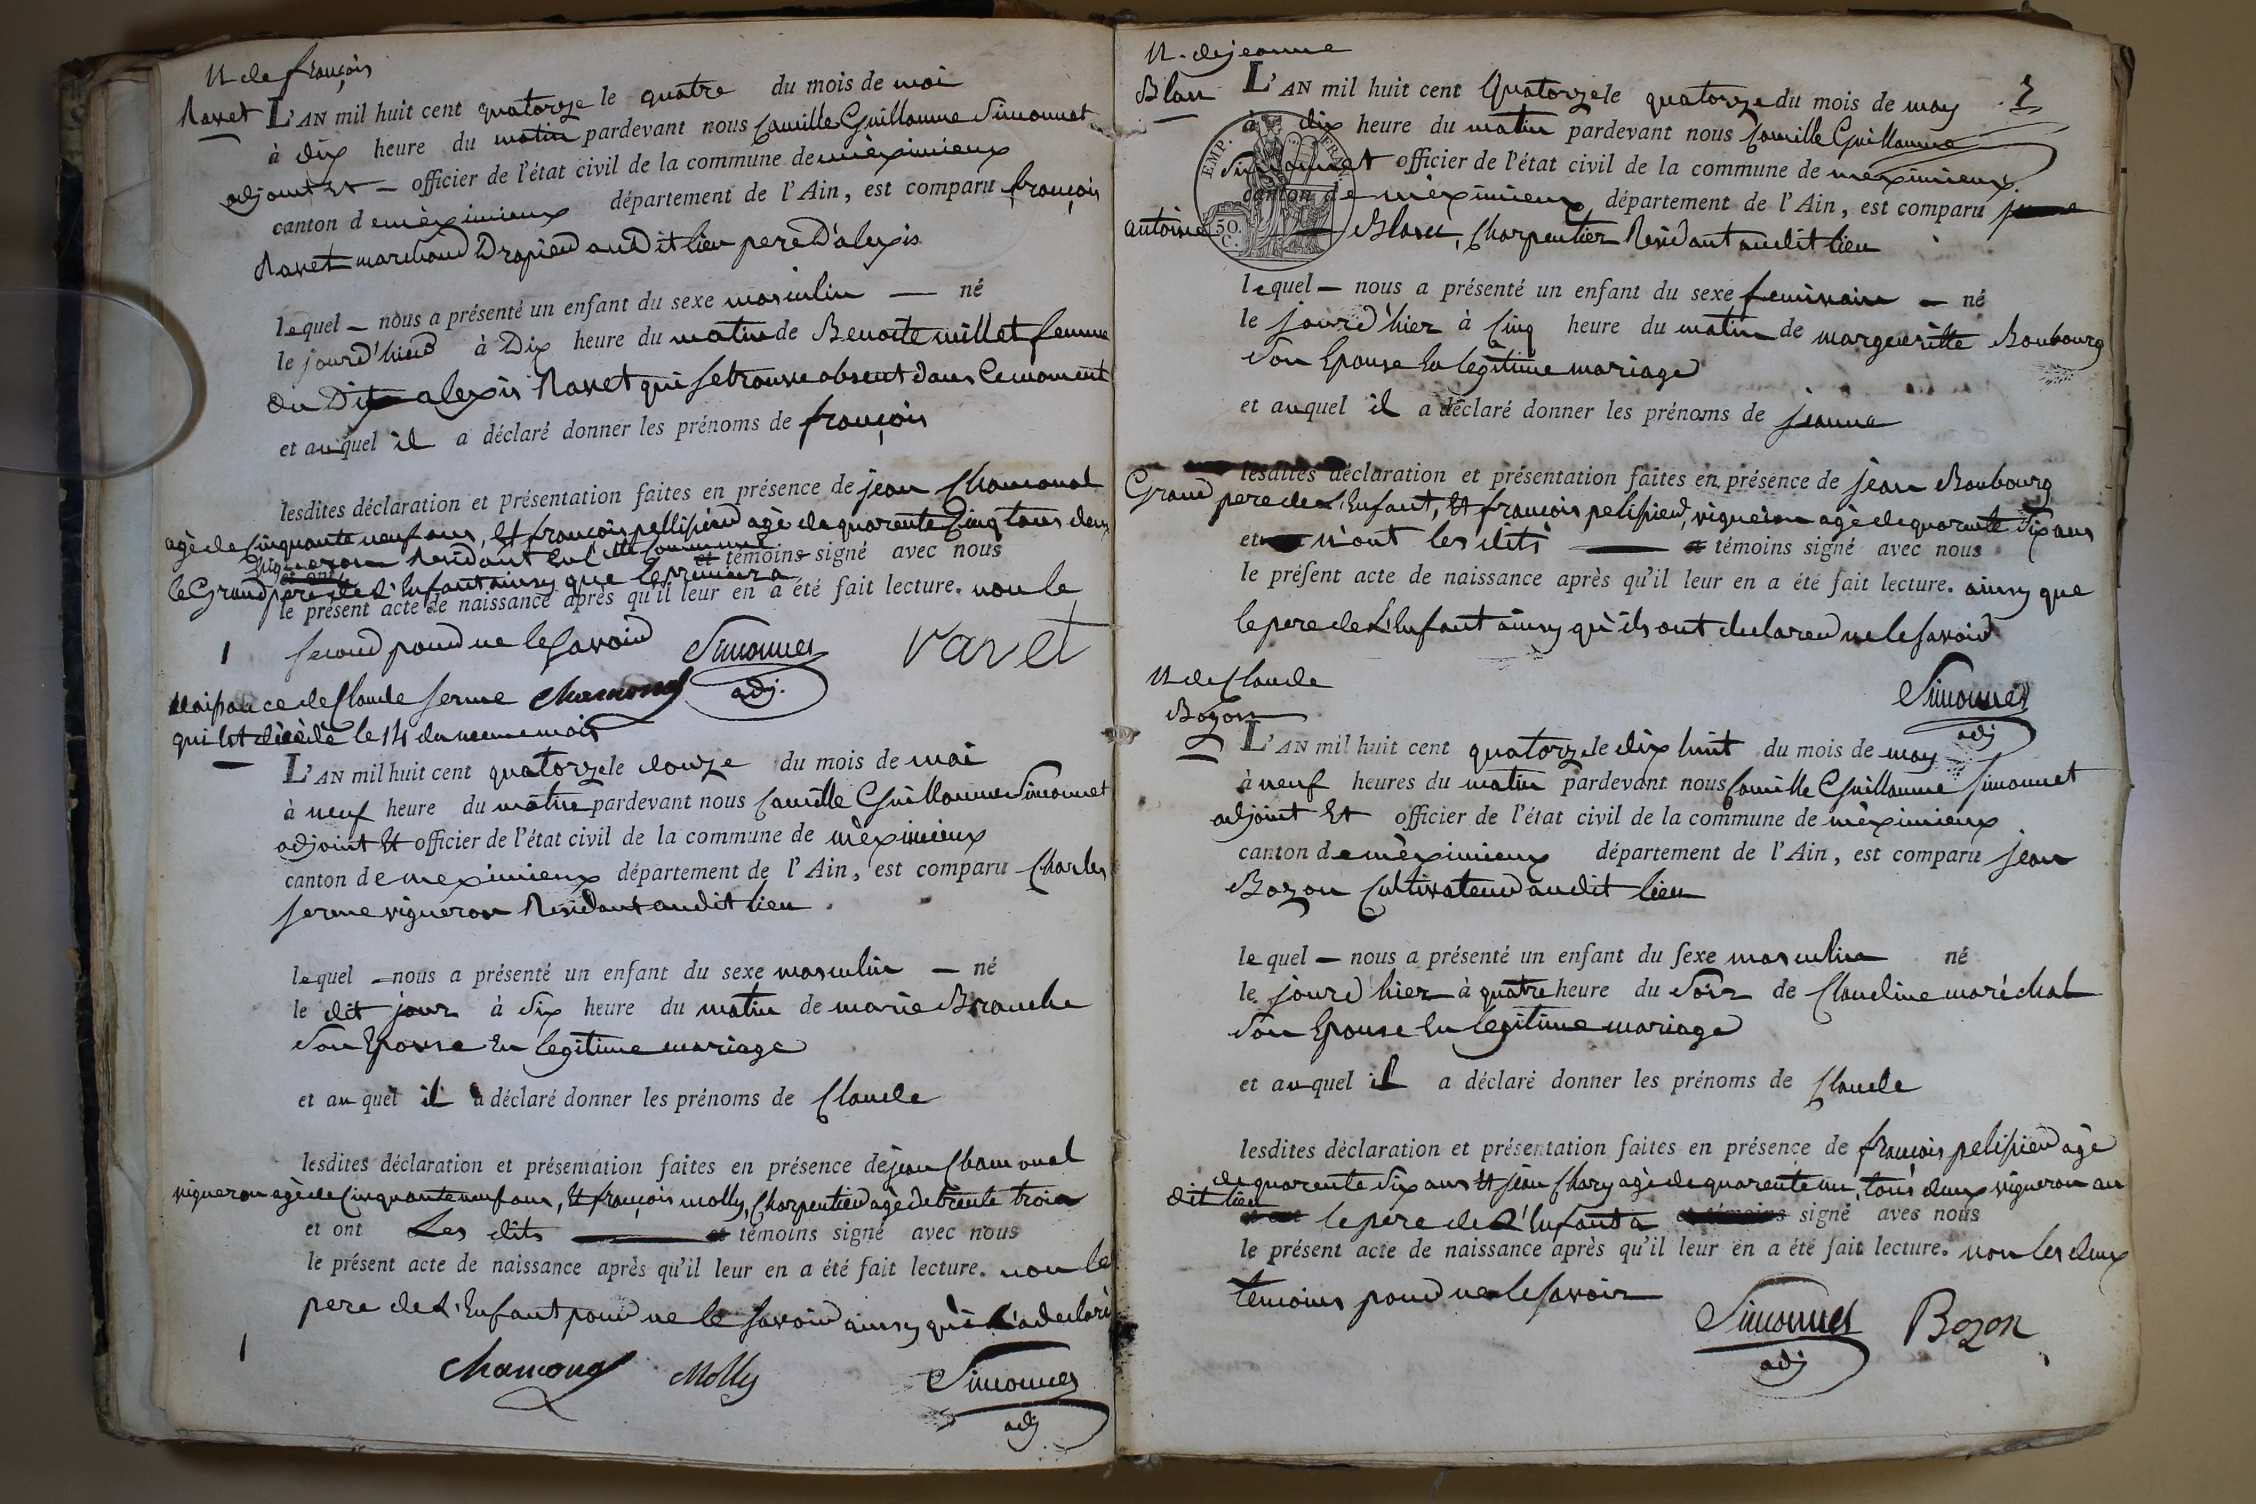 N. de françois
Ravet
L'AN mil huit cent quatorze le quatre du mois de mai
à dix heure du matin pardevant nous Camille Guillaume Simonnet
adjoint et — officier de l'état civil de la commune de mèximieux
canton de mèximieux département de l'Ain, est comparu françois
Ravet marchand Drapier audit lieu pere D'alexis
lequel — nous a présenté un enfant du sexe masculin — né
le jourd'hier à Dix heure du matin de Benoite millet femme
du Dit alexis Ravet qui se trouve absent dans le moment
et auquel il a déclaré donner les prénoms de françois
lesdites déclaration et présentation faites en présence de jean Chamonal
agè de Cinquante neuf ans, Et françois pellissier agè de quarente Cinq tous deux
vigneron Residant en Cette Commune et témoins signé avec nous
et ont
le Grand pere de L'Enfant ainsy que le premier
le présent acte de naissance après qu'il leur en a été fait lecture. non le
1 second pour ne le savoir Simonnet Varet
adj.
Naissance de Claude serme Chamonal
qui Est dècèdè le 14 du meme mois
L'AN mil huit cent quatorze le douze du mois de mai
à neuf heure du matin pardevant nous Camille Guillaume Simonnet
adjoint Et officier de l'état civil de la commune de mèximieux
canton de meximieux département de l'Ain, est comparu Charles
serme vigneron Residant audit lieu
lequel — nous a présenté un enfant du sexe masculin — né
le dit jour à six heure du matin de marie Branche
son Epouse En legitime mariage
et auquel il a déclaré donner les prénoms de Claude
lesdites déclaration et présentation faites en présence de jean Chamonal
vigneron agè de Cinquante neuf ans, Et françois molly, Charpentier agè de trente trois
et ont Les dits — et témoins signé avec nous
le présent acte de naissance après qu'il leur en a été fait lecture. non le
pere de L'Enfant pour ne le savoir ainsy què L'a declarè
1
Chamonal Molly Simonnet
adj
N. de jeanne
Blan
L'AN mil huit cent Quatorze le quatorze du mois de may
à dix heure du matin pardevant nous Camille Guillaume
Simonnet officier de l'état civil de la commune de mèximieux
canton de mèximieux département de l'Ain, est comparu
antoine — Blanc, Charpentier Residant audit lieu
EMP. FRAN.
50. C.
lequel — nous a présenté un enfant du sexe feminain — né
le jourd'hier à Cinq heure du matin de margueritte Boubourg
son Epouse En legitime mariage
et auquel il a déclaré donner les prénoms de jeanne
lesdites déclaration et présentation faites en présence de jean Boubourg
Grand pere de L'Enfant, Et françois pelissier, vigneron agè de quarente six ans
et n'ont les dits — et témoins signé avec nous
le présent acte de naissance après qu'il leur en a été fait lecture. ainsy que
le pere de L'Enfant ainsy qu'ils ont declarer ne le savoir
Simonnet
adj
N. de Claude
Bozon
L'AN mil huit cent quatorze le dix huit du mois de may
à neuf heures du matin pardevant nous Camille Guillaume Simonnet
adjoint Et officier de l'état civil de la commune de mèximieux
canton de mèximieux département de l'Ain, est comparu jean
Bozon Cultivateur audit lieu
lequel — nous a présenté un enfant du sexe masculin né
le jourd'hier à quatre heure du soir de Claudine maréchal
son Epouse En legitime mariage
et auquel il a déclaré donner les prénoms de Claude
lesdites déclaration et présentation faites en présence de françois pelissier agè
de quarente six ans Et jean Chary agè de quarente un, tous deux vigneron au
dit lieu
le père de L'Enfant a signé avec nous
le présent acte de naissance après qu'il leur en a été fait lecture. non les deux
temoins pour ne le savoir
Simonnet Bozon
adj